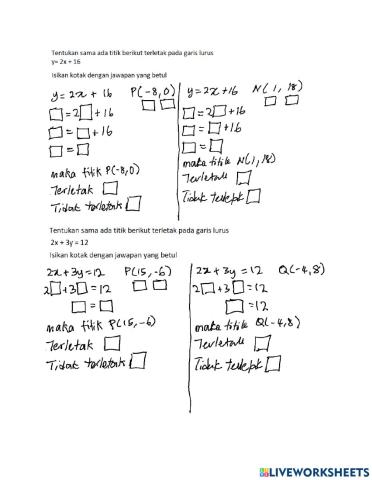 Tentukan sama ada titik berikut terletak pada garis lurus
y= 2x + 16
Isikan kotak dengan jawapan yang betul
y = 2x + 16 P(-8,0)
□ = 2□ + 16
□ = □ + 16
□ = □
maka titik P(-8,0)
Terletak □
Tidak terletak □
y = 2x + 16 N(1, 18)
□ = 2□ + 16
□ = □ + 16
□ = □
maka titik N(1,18)
Terletak □
Tidak terletak □
Tentukan sama ada titik berikut terletak pada garis lurus
2x + 3y = 12
Isikan kotak dengan jawapan yang betul
2x + 3y = 12 P(15,-6)
2□ + 3□ = 12
□ = □
maka titik P(15,-6)
Terletak □
Tidak terletak □
2x + 3y = 12 Q(-4,8)
2□ + 3□ = 12
□ = 12
maka titik Q(-4,8)
Terletak □
Tidak terletak □
LIVEWORKSHEETS